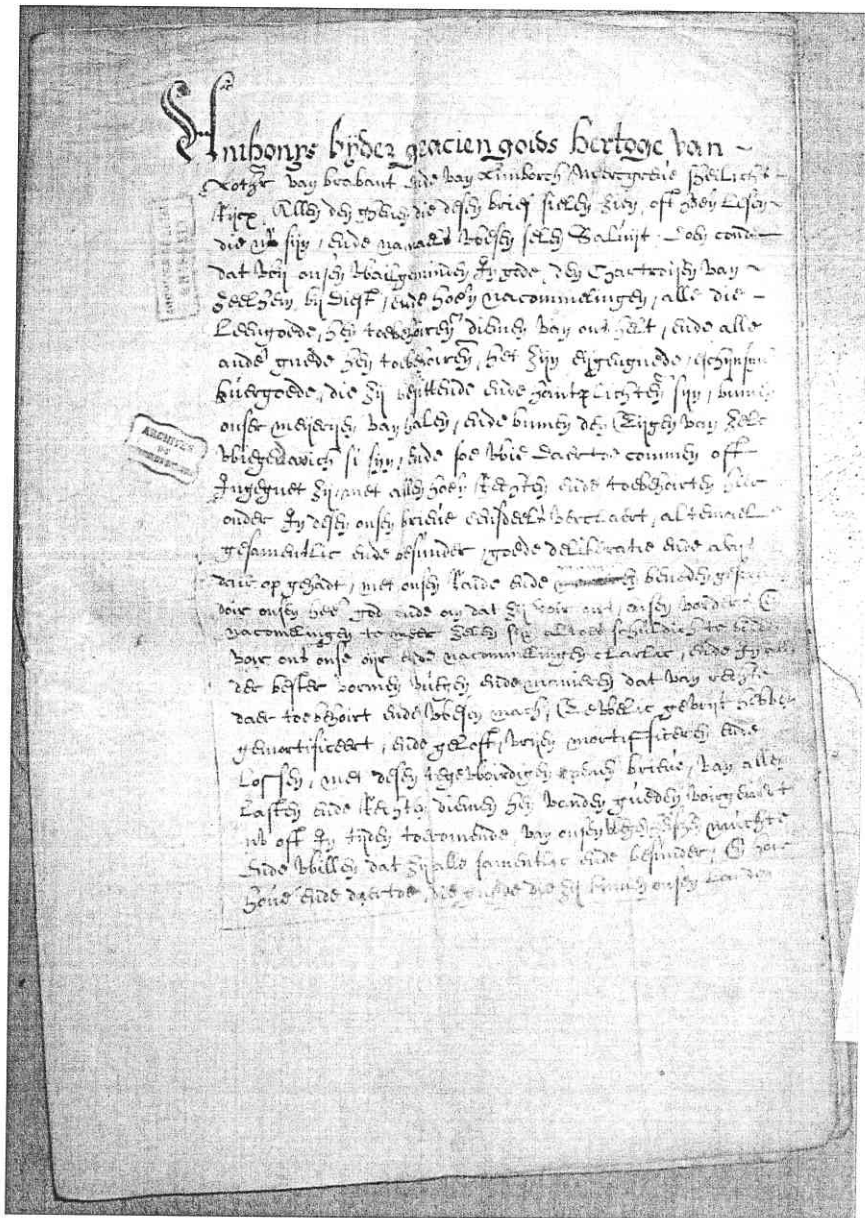 Anthonys bijder gracien goids hertoge van
van brabant ende van Limborch Mercgreve sheilichs
Rijcx Allen den ghenen die desen brief sielen sien oft horen Lesen
die nu sijn, ende namaels wesen selen Saluijt. Doen condt
dat Wij onsen Wailgeminden In gode, den Chartroijsen van
Zeelhem bij Diest, ende hoeren nacommelingen, alle die
Leengoede, hen toebehoirende diemen van ons helt, ende alle
ande guede hen toebehoiren, het zijn eijgenguede,
die zij besittende ende sijn, binnen
onser meijerijen van halen, ende binnen den van
si sijn, ende soe Wie Daer toe commen off
zijn met allen hoeren Rechten ende toebehoirten hier
onder In desen onsen brieve eensdeels verclaert, altemael
gesamentlic ende besunder, goede deliberatie ende
dair op gehadt, met onsen Raide ende beneden
doir onsen heer god ende om dat zij voir ons, onsen vorders
nacomelingen te meer selen sijn schuldich te
voir ons onse oijr ende nacommelingen claerlic, ende In alle
der bester vormen ende manieren dat van rechte
daer toebehoirt ende Wesen mach, gevrijt hebben
gemortificeert, ende geloft, vrijen mortifficeren ende
Lossen, met desen tegewoirdigen openen brieve, van allen
Lasten ende Rechten diemen hen vanden gueden voirgenoemt
nu off In tijden toecomende, van onsen muchte
Ende Willen dat zij alle samentlic ende besunder,
hove ende daertoe, die guede die zij binnen onsen Landen
ARCHIVES